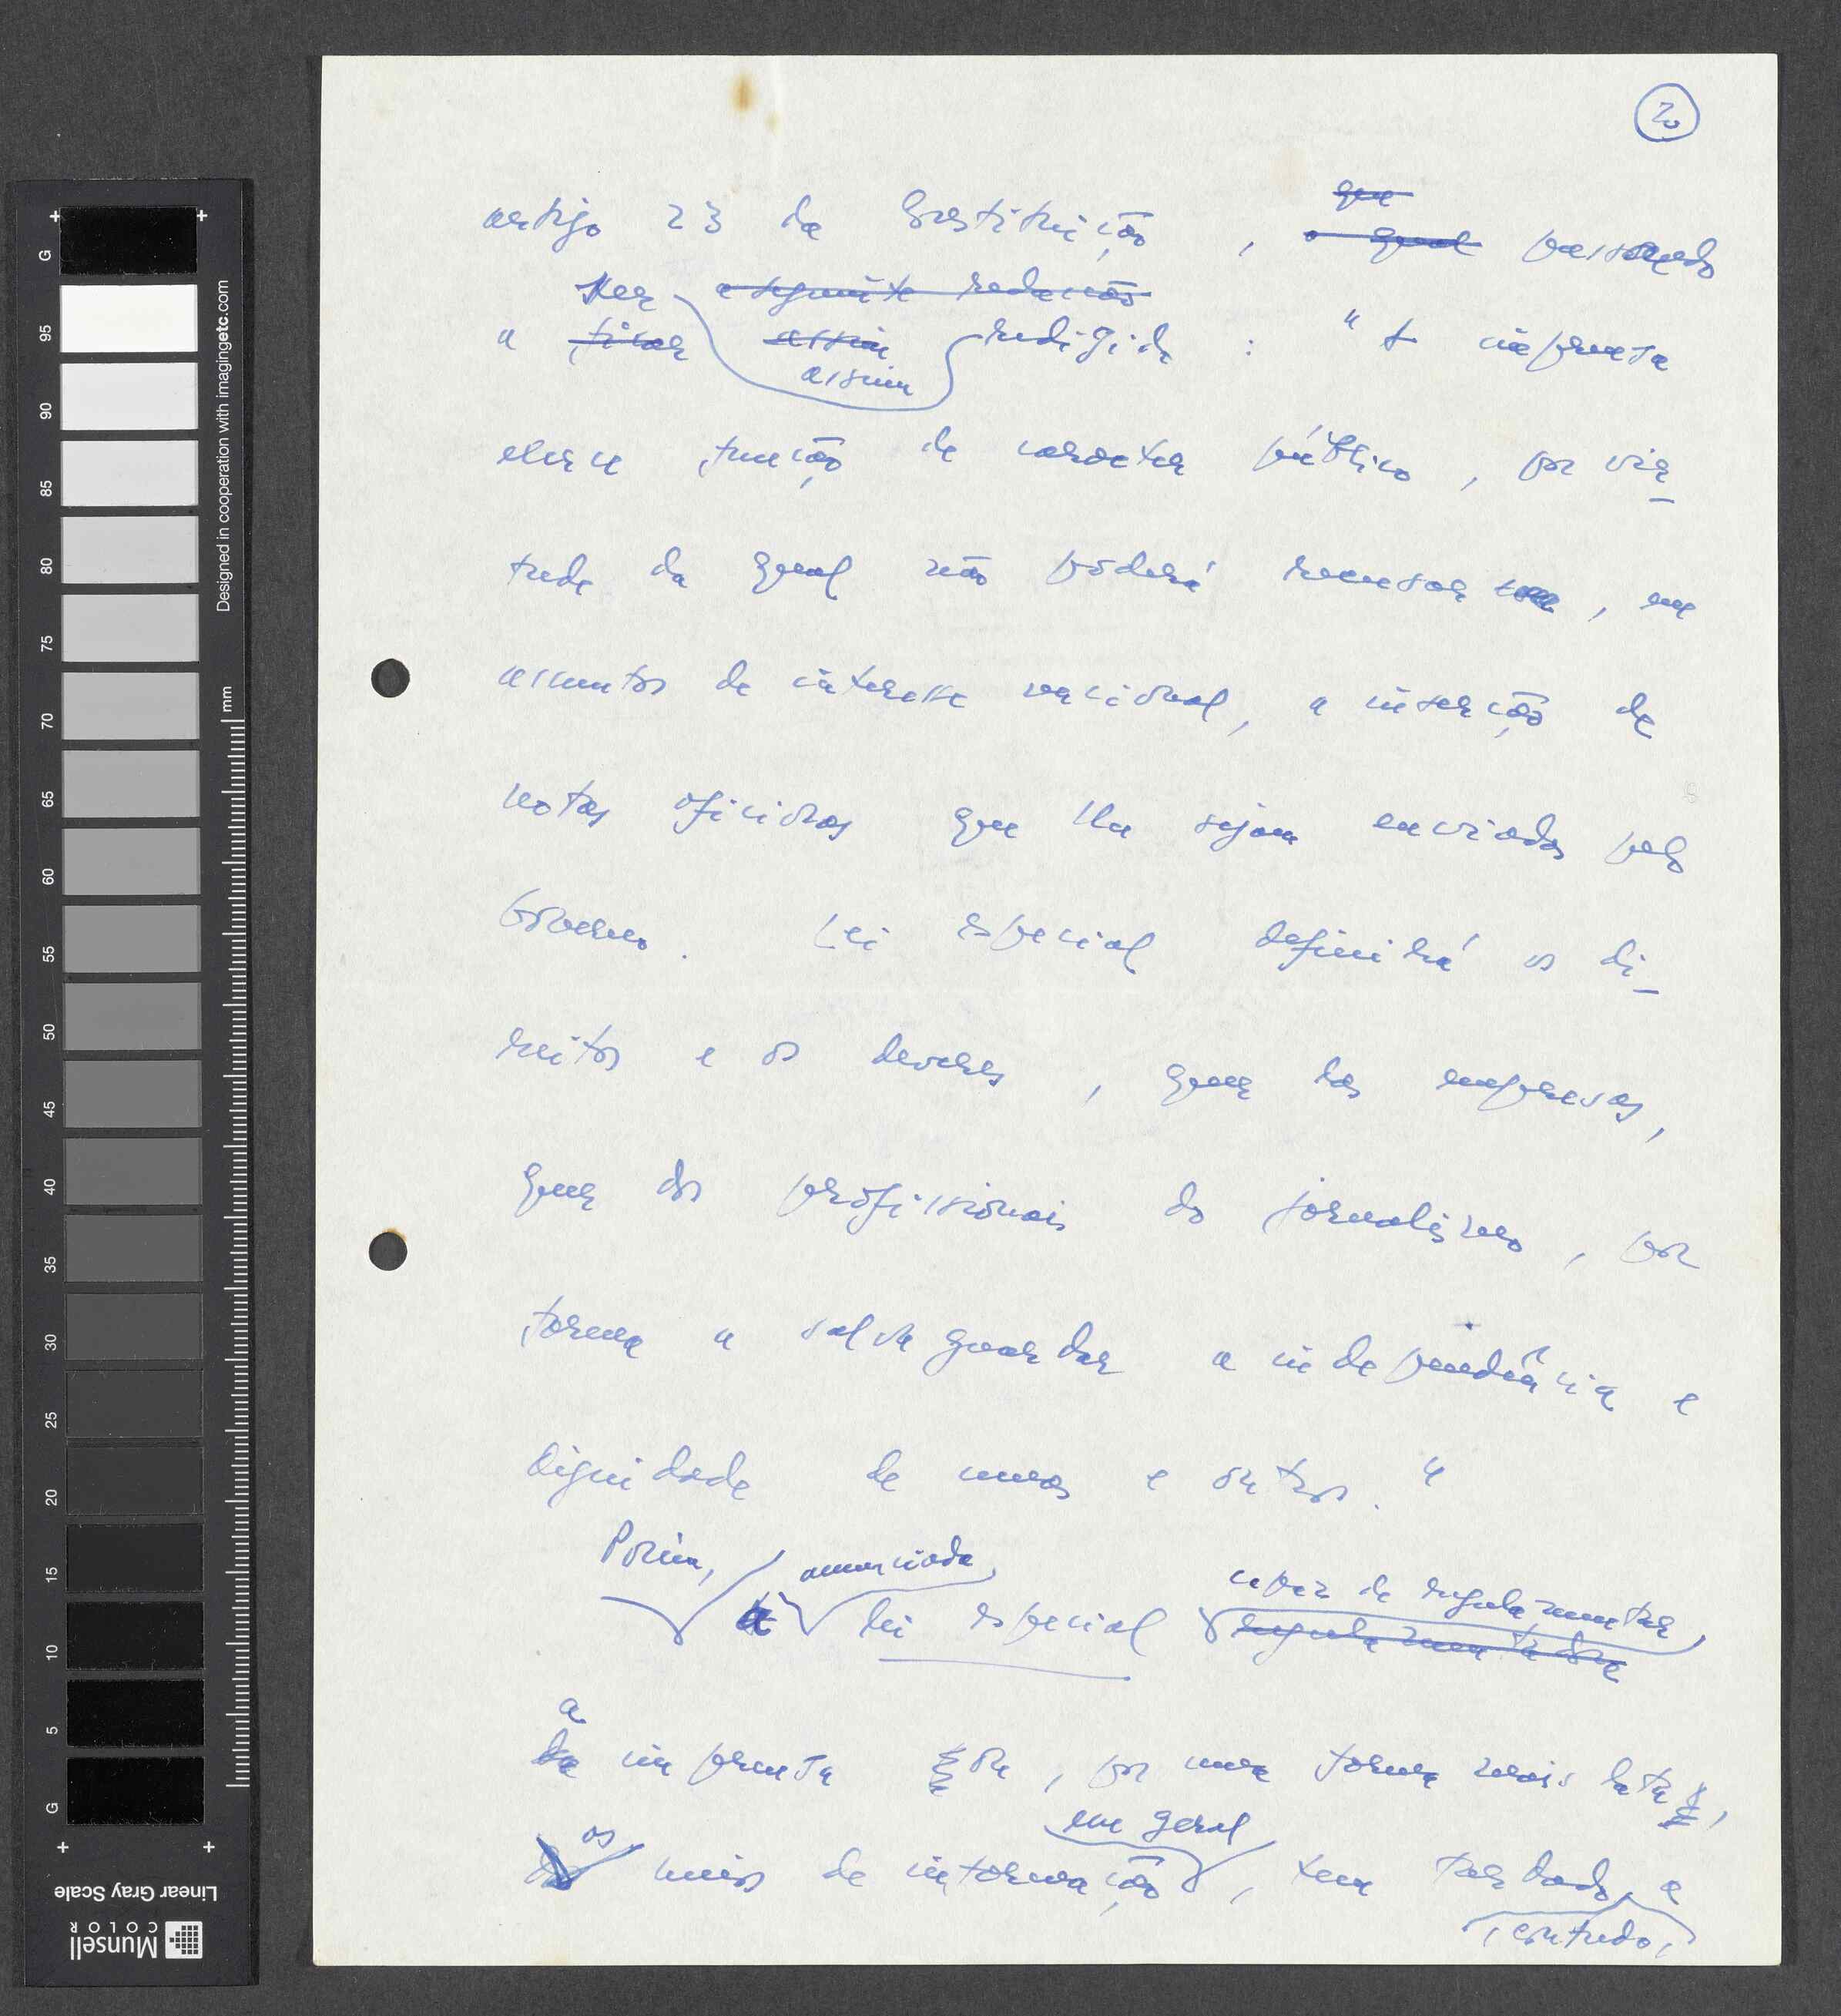 2
que
artigo 23 da Constituição, o qual passando
ser a seguinte redacção
a ficar assim redigido : "A imprensa
assim
exerce função de caracter público, por vir-
tude da qual não poderá recusar, em
assuntos de interesse nacional, a inserção de
notas oficiosas que lhe sejam enviadas pelo
Governo. Lei especial definirá os di-
reitos e os deveres, quer das empresas,
quer dos profissionais do jornalismo, por
forma a salvaguardar a independência e
dignidade de umas e outros."
Porém, anunciada capaz de regulamentar
a lei especial regulamentadora
a
da imprensa ou, por uma forma mais lata,
os em geral
meios de informação, tem tardado, a
, contudo,
G 95 90 85 80 75 70 65 60 55 50 45 40 35 30 25 20 15 10 5 G
Designed in cooperation with imagingetc.com
mm
Linear Gray Scale
Munsell
COLOR